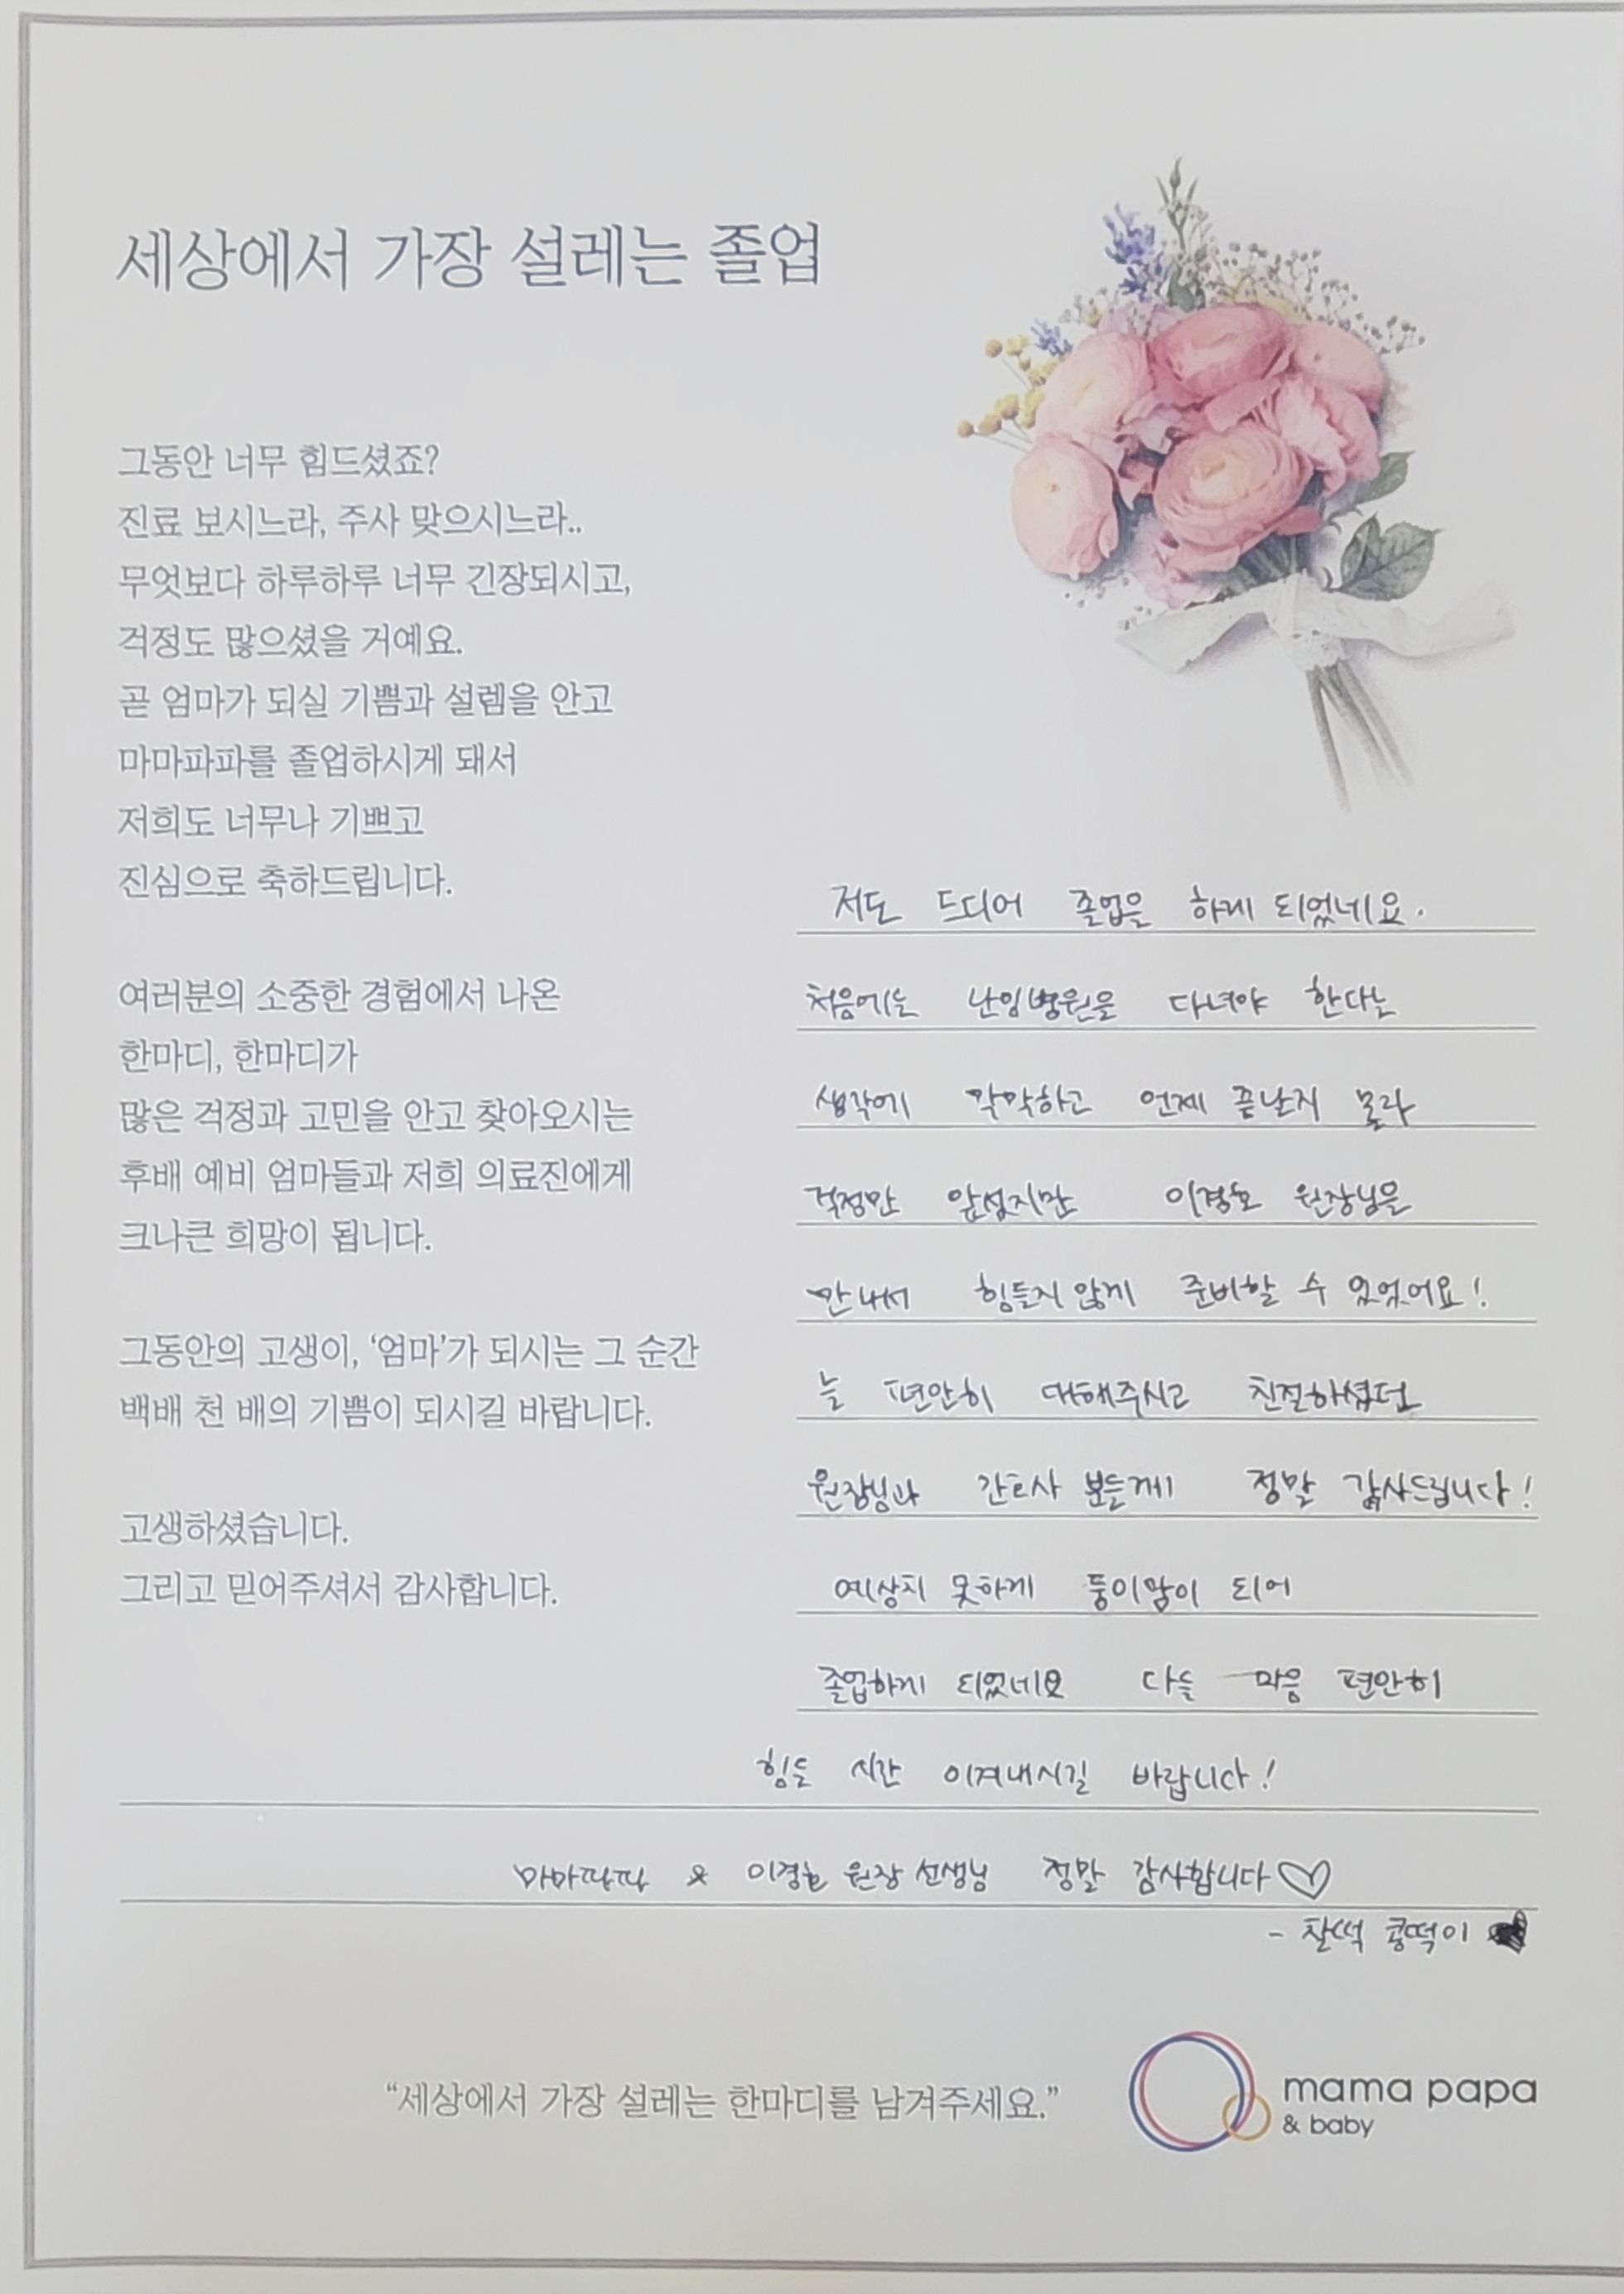 세상에서 가장 설레는 졸업
그동안 너무 힘드셨죠?
진료 보시느라, 주사 맞으시느라..
무엇보다 하루하루 너무 긴장되시고,
걱정도 많으셨을 거예요.
곧 엄마가 되실 기쁨과 설렘을 안고
마마파파를 졸업하시게 돼서
저희도 너무나 기쁘고
진심으로 축하드립니다.
여러분의 소중한 경험에서 나온
한마디, 한마디가
많은 걱정과 고민을 안고 찾아오시는
후배 예비 엄마들과 저희 의료진에게
크나큰 희망이 됩니다.
그동안의 고생이, ‘엄마’가 되시는 그 순간
백배 천 배의 기쁨이 되시길 바랍니다.
고생하셨습니다.
그리고 믿어주셔서 감사합니다.
저도 드디어 졸업을 하게 되었네요.
처음에는 난임병원을 다녀야 한다는
생각에 막막하고 언제 끝날지 몰라
걱정만 앞섰지만 이경호 원장님을
만나서 힘들지 않게 준비할 수 있었어요!
늘 편안히 대해주시고 친절하셨던
원장님과 간호사 분들께 정말 감사드립니다!
예상치 못하게 둥이맘이 되어
졸업하게 되었네요 다들 마음 편안히
힘든 시간 이겨내시길 바랍니다!
마마파파 & 이경호 원장 선생님 정말 감사합니다♡
- 찰떡 콩떡이
“세상에서 가장 설레는 한마디를 남겨주세요.”
mama papa
& baby